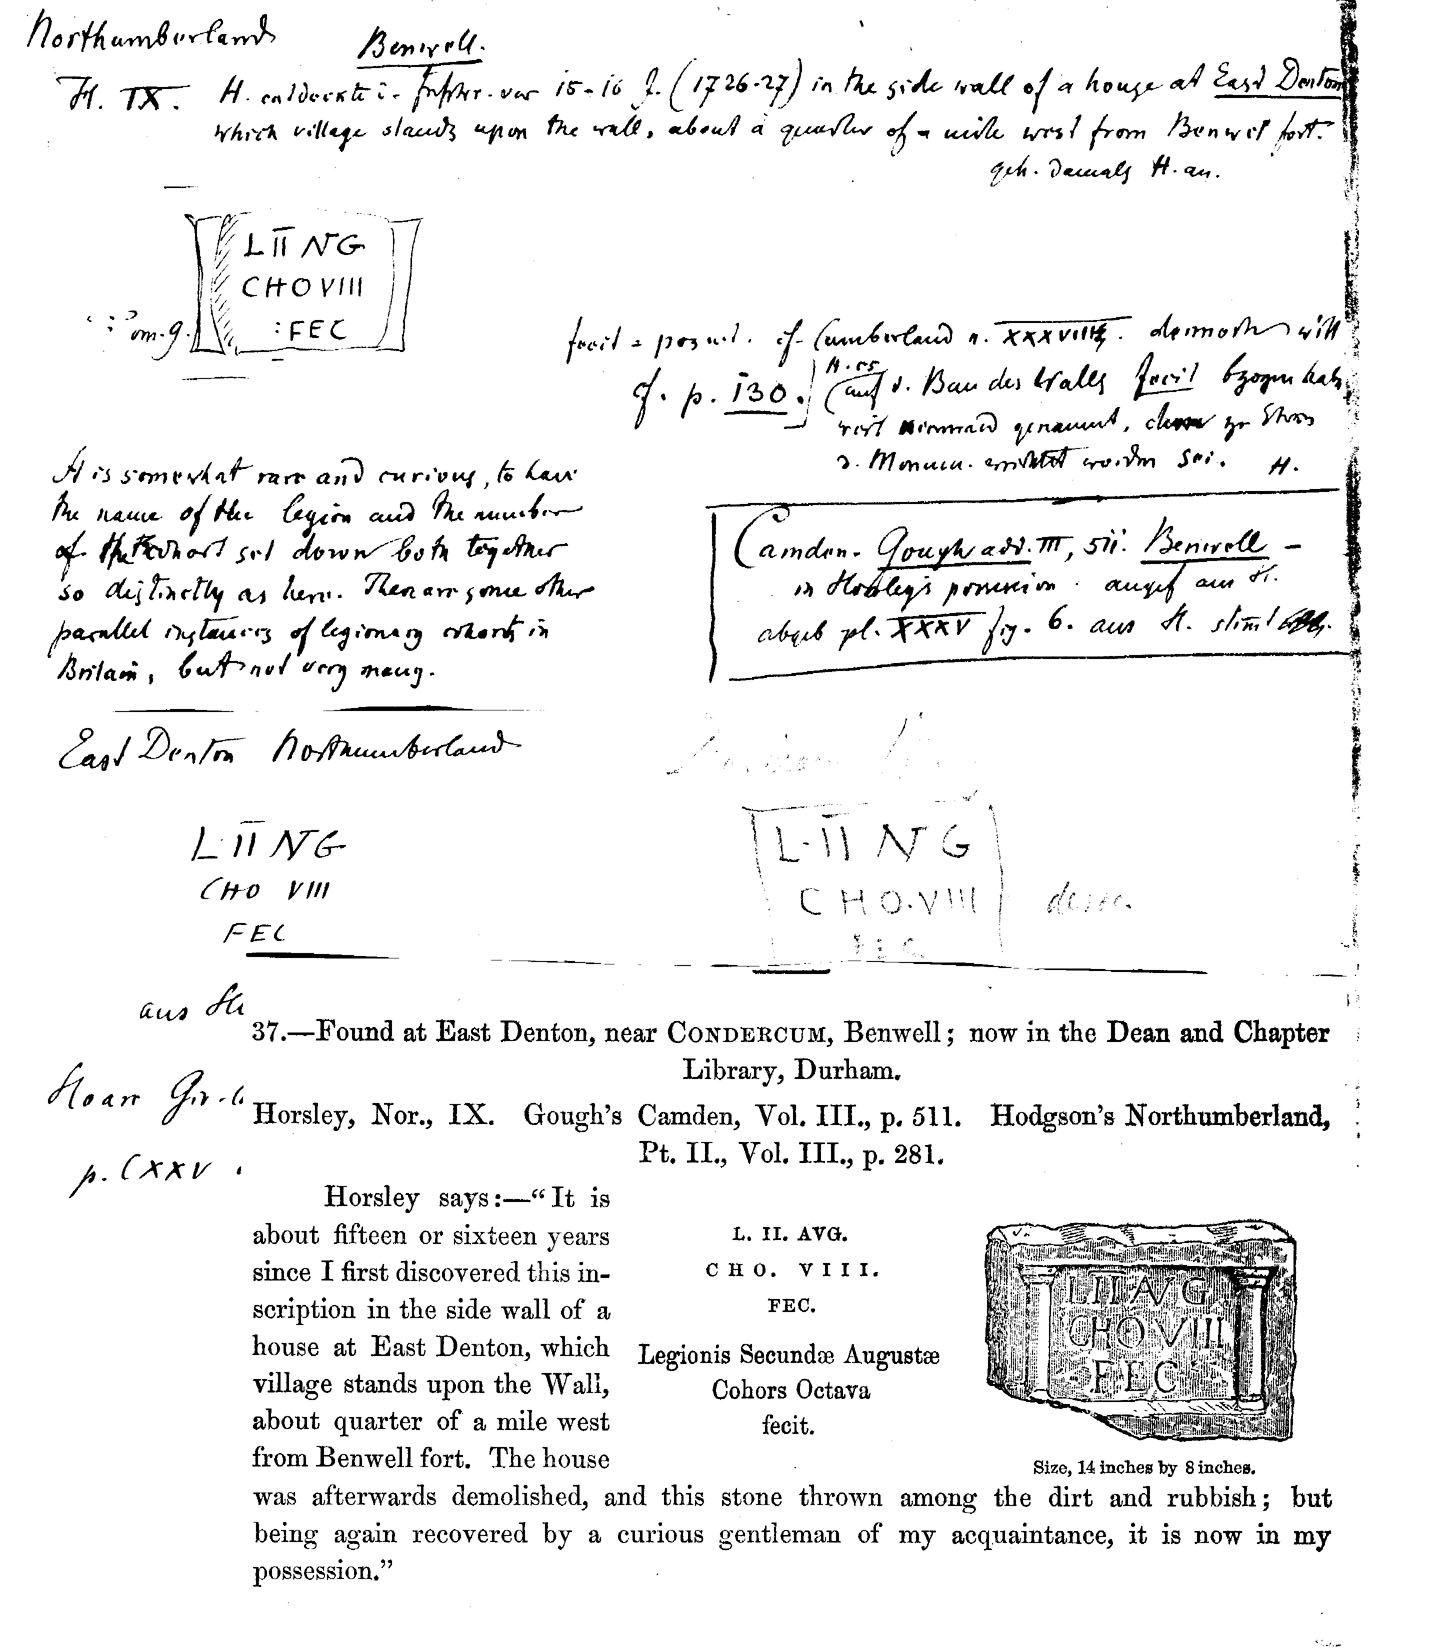 Northumberland
Benwell.
H. IX. H. entdeckte i. Inschr. vor 15-16 J. (1726-27) in the side wall of a house at East Denton
which village stands upon the wall, about a quarter of a mile west from Benwel fort.
geh. damals H. an.
L II AVG
CHO VIII
: FEC
om. g.
fecit = posuit. cf. Cumberland n. XXXVIIII. dennoch will
cf. p. 130. H. es (auf d. Bau des Walls fecit bezogen hab.
weil niemand genannt, dem zu Ehren
d. Monum. errichtet worden sei. H.
It is somewhat rare and curious, to have
the name of the legion and the number
of the cohort set down both together
so distinctly as here. There are some other
parallel instances of legionary cohorts in
Britain, but not very many.
Camden-Gough add. III, 511. Benwell –
in Horsley's possession. angef aus H.
abgeb pl. XXXV fig. 6. aus H. stimt
East Denton Northumberland
L. II AVG
CHO VIII
FEC
L. II AVG
CHO. VIII
FEC
aus
37.—Found at East Denton, near CONDERCUM, Benwell; now in the Dean and Chapter
Library, Durham.
Horsley, Nor., IX. Gough's Camden, Vol. III., p. 511. Hodgson's Northumberland,
Pt. II., Vol. III., p. 281.
p. CXXV
Horsley says:—"It is
about fifteen or sixteen years
since I first discovered this in-
scription in the side wall of a
house at East Denton, which
village stands upon the Wall,
about quarter of a mile west
from Benwell fort. The house
L. II. AVG.
CHO. VIII.
FEC.
Legionis Secundæ Augustæ
Cohors Octava
fecit.
L II AVG
CHO VIII
FEC
Size, 14 inches by 8 inches.
was afterwards demolished, and this stone thrown among the dirt and rubbish; but
being again recovered by a curious gentleman of my acquaintance, it is now in my
possession."